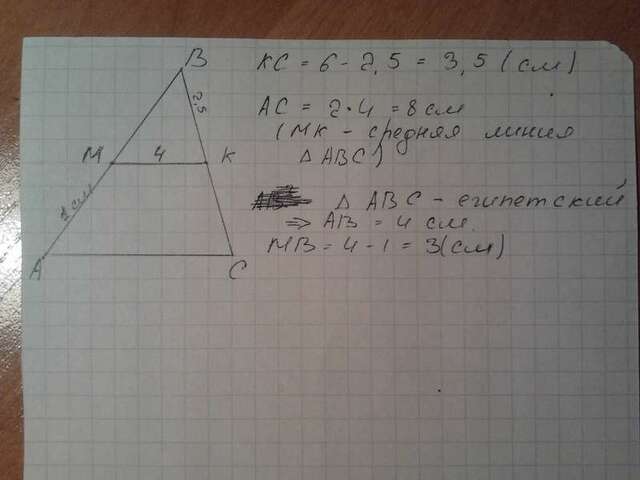 B
2,5
M
4
K
1 см
A
C
KC = 6 - 2,5 = 3,5 (см)
AC = 2·4 = 8 см
(MK - средняя линия
Δ ABC)
Δ ABC - египетский
⇒ AB = 4 см.
MB = 4 - 1 = 3(см)